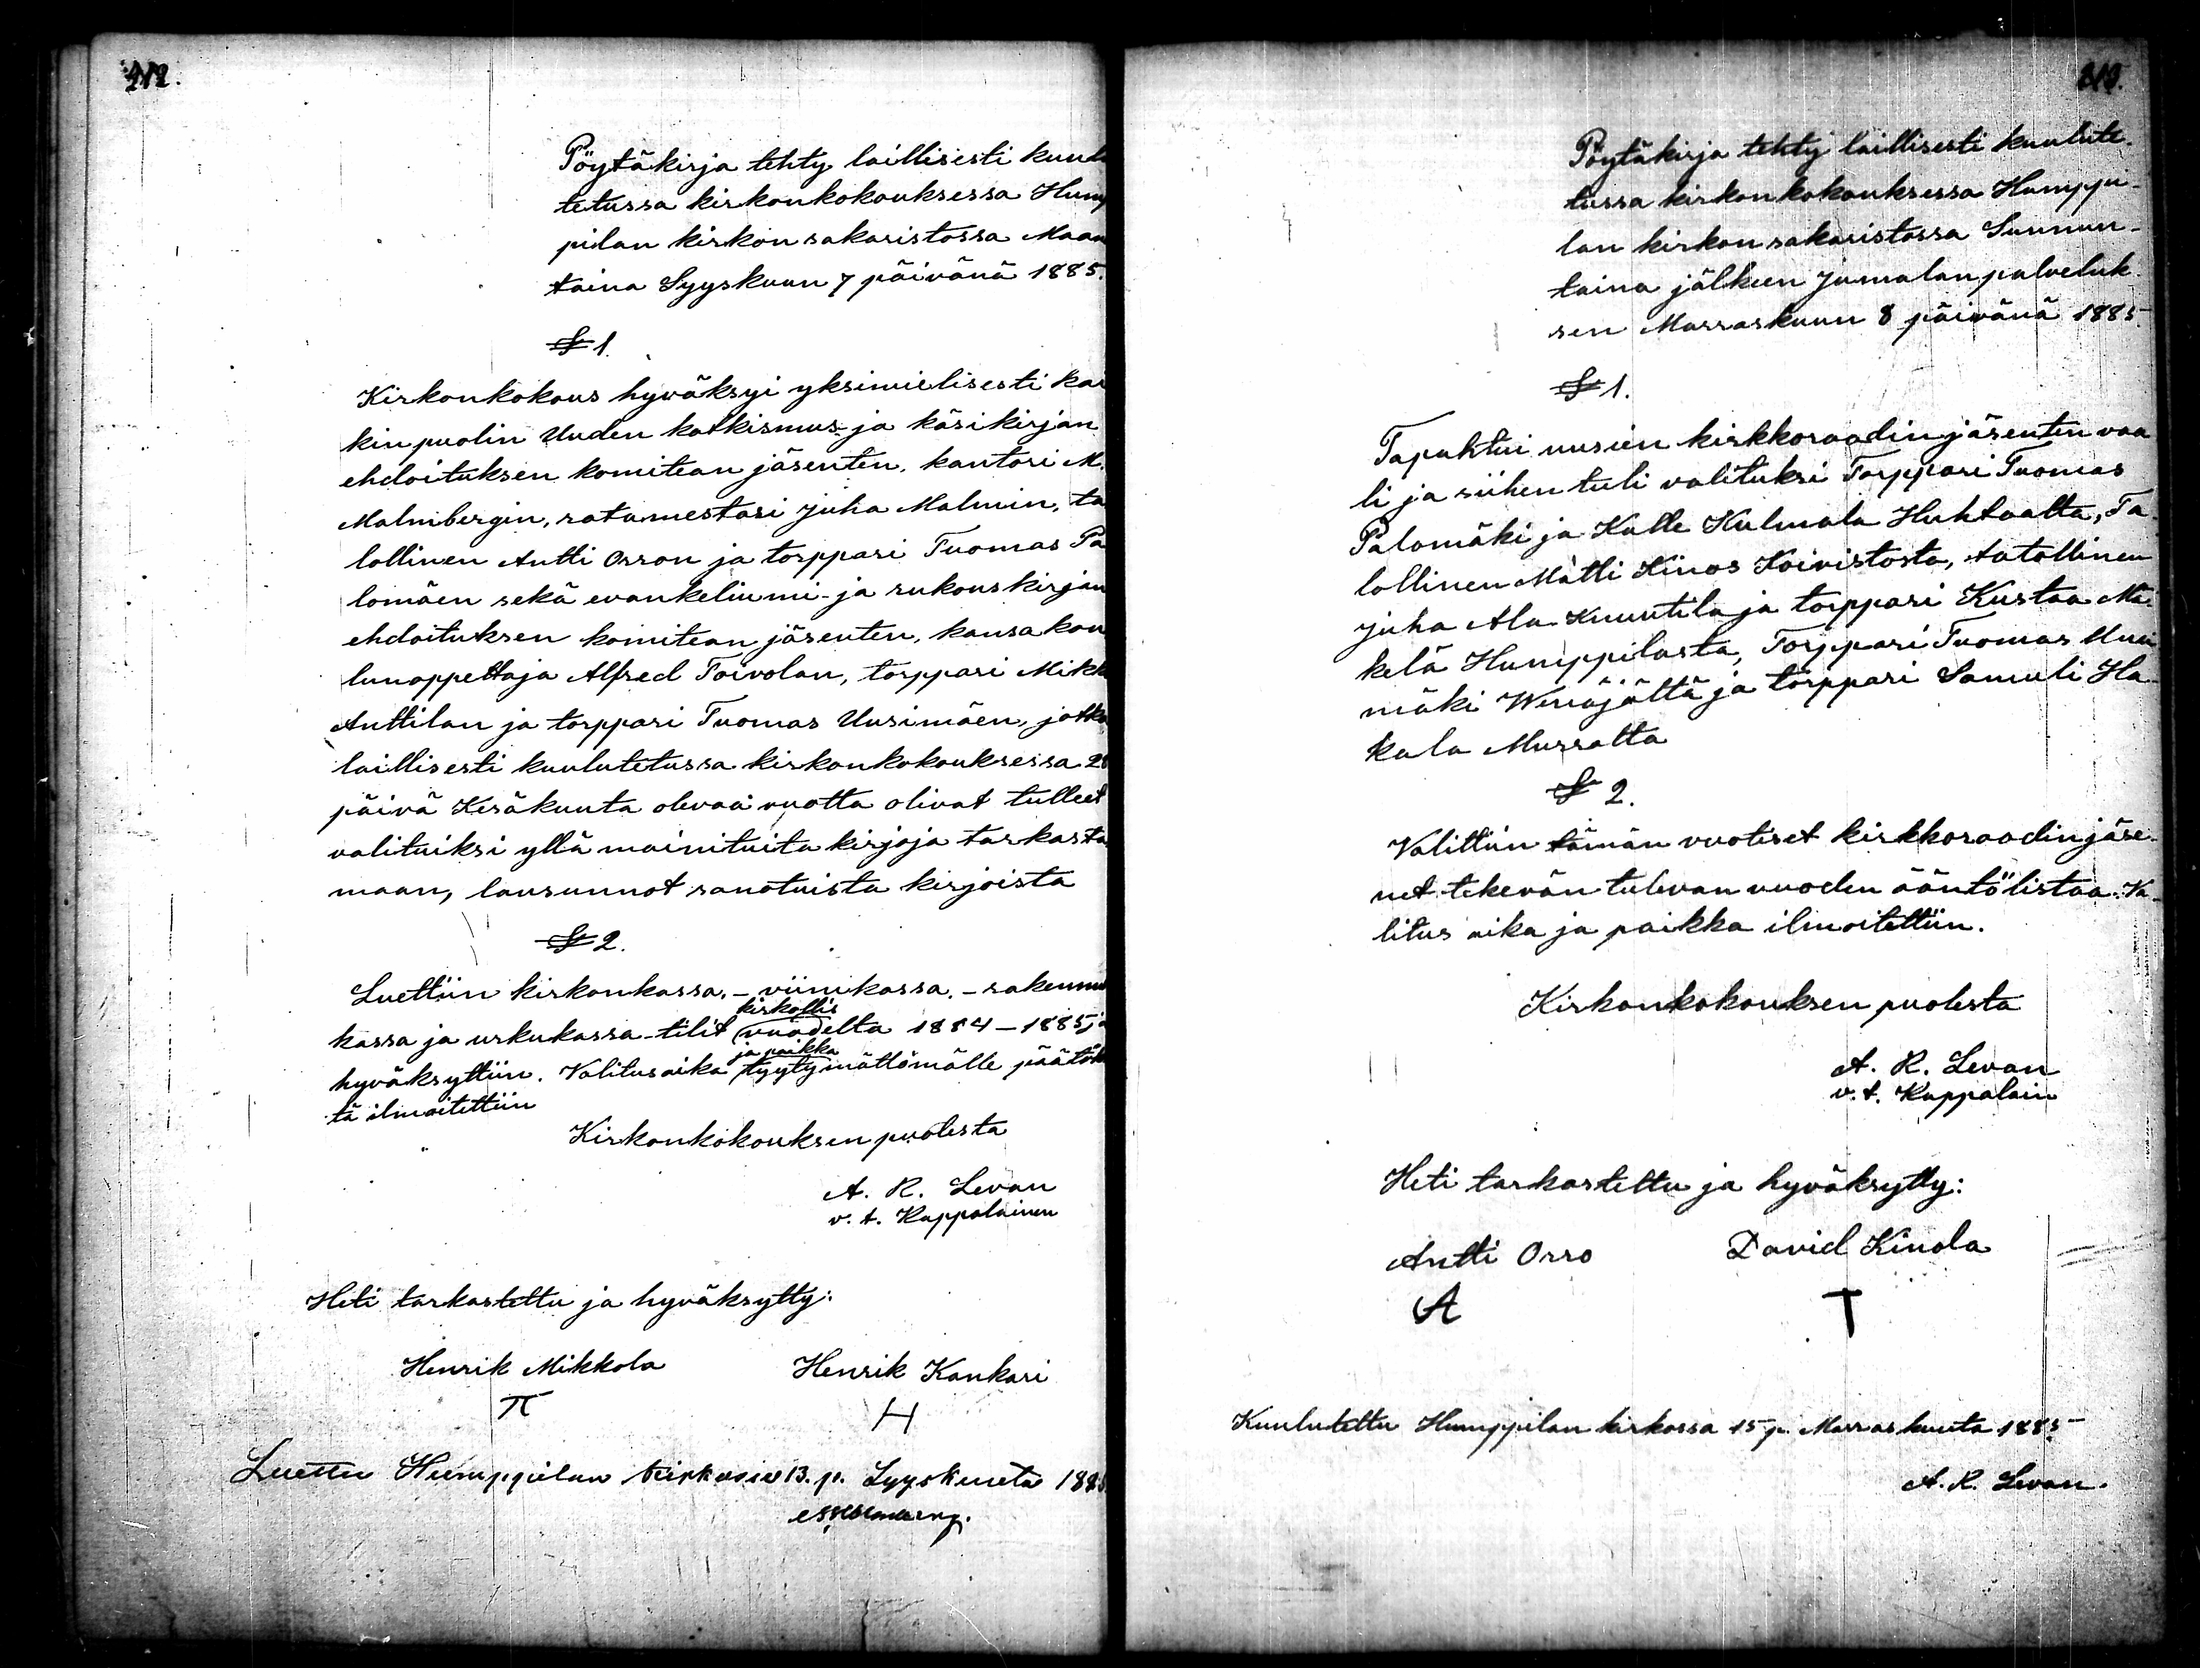 212.
Pöytäkirja tehty laillisesti kuulu
tetussa kirkonkokouksessa Hump
pilan kirkon sakaristossa Maan
taina Syyskuun 7 päivänä 1885.
§ 1.
Kirkonkokous hyväksyi yksimielisesti kai
kin puolin Uuden katkismus- ja käsikirjan
ehdoituksen komitean jäsenten, kantori M.
Malmbergin, ratamestari Juha Malmin, ta
lollinen Antti Orron ja torppari Tuomas Pa
lomäen sekä evankeliumi- ja rukouskirjan
ehdoituksen komitean jäsenten, kansakou
lunoppettaja Alfred Toivolan, torppari Mikko
Anttilan ja torppari Tuomas Uusimäen, jotka
laillisesti kuulutetussa kirkonkokouksessa 28
päivä Kesäkuuta olevaa vuotta olivat tulleet
valituiksi yllä mainituita kirjoja tarkasta
maan, lausunnot sanotuista kirjoista
§ 2.
Luettiin kirkonkassa, – viinikassa, – rakennus
kirkollis
kassa ja urkukassa-tilit vuodelta 1884–1885, ja
ja paikka
hyväksyttiin. Valitusaika tyytymättömälle päätök
tä ilmoitettiin
Kirkonkokouksen puolesta
A. R. Levan
v. t. Kappalainen
Heti tarkastettu ja hyväksytty:
Henrik Mikkola Henrik Kankari
π H
Luettu Humppilan kirkossa 13. p. Syyskuuta 1885
Pöytäkirja tehty laillisesti kuulute-
tussa kirkonkokouksessa Humppi-
lan kirkon sakaristossa Sunnun-
taina jälkeen Jumalanpalveluk-
sen Marraskuun 8 päivänä 1885.
§ 1.
Tapahtui uusien kirkkoraadin jäsenten vaa
li ja siihen tuli valituksi Torppari Tuomas
Palomäki ja Kalle Kulmala Huhtaalta, Ta
lollinen Matti Kinos Koivistosta, talollinen
Juha Ala-Kuuntila ja torppari Kustaa Mä-
kelä Humppilasta, Torppari Tuomas Uusi
mäki Wenäjältä ja torppari Samuli Ha-
kala Murralta
§ 2.
Valittiin tämän vuotiset kirkkoraadin jäse-
net tekevän tulevan vuoden ääntölistaa. Va-
litus aika ja paikka ilmoitettiin.
Kirkonkokouksen puolesta
A. R. Levan
v. t. Kappalain
Heti tarkastettu ja hyväksytty:
Antti Orro David Kinola
A T
Kuulutettu Humppilan kirkossa 15 p. Marraskuuta 1885
A. R. Levan.